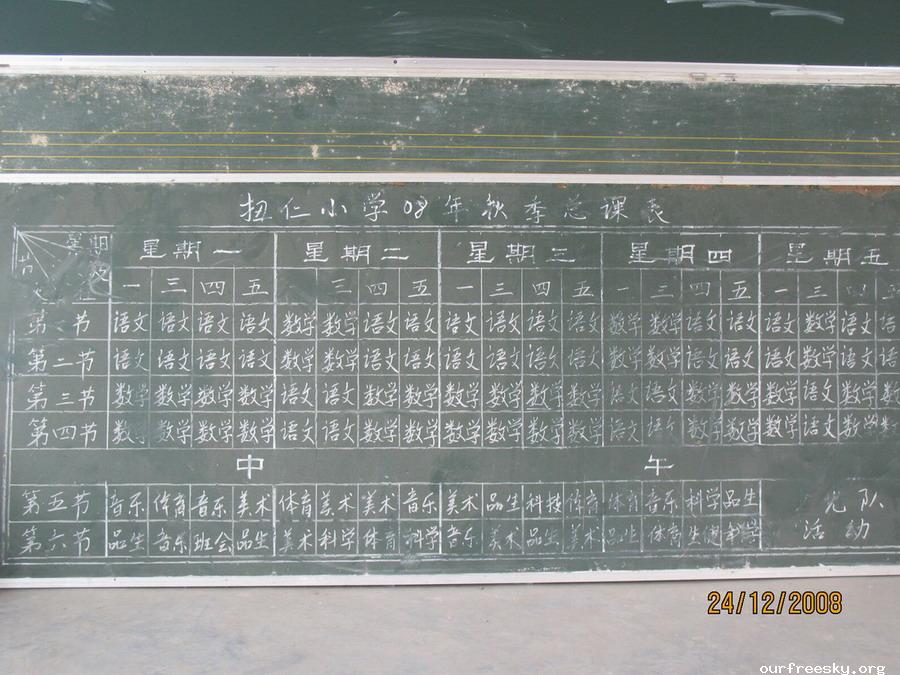 扭仁小学08年秋季总课表
星期 星期一 星期二 星期三 星期四 星期五
节 一 三 四 五 三 四 五 一 三 四 五 一 三 四 五 一 三 四 五
第一节 语文 语文 语文 语文 数学 数学 语文 语文 语文 语文 语文 语文 数学 数学 语文 语文 语文 数学 语文 语
第二节 语文 语文 语文 语文 数学 数学 语文 语文 语文 语文 语文 语文 数学 数学 语文 语文 语文 数学 语文 语
第三节 数学 数学 数学 数学 语文 语文 数学 数学 数学 数学 数学 数学 语文 语文 数学 数学 数学 语文 数学 数
第四节 数学 数学 数学 数学 语文 语文 数学 数学 数学 数学 数学 数学 语文 语文 数学 数学 数学 语文 数学 数
中 午
第五节 音乐 体育 音乐 美术 体育 美术 美术 音乐 美术 品生 科技 体育 体育 音乐 科学 品生 队
第六节 品生 音乐 班会 品生 美术 科学 体育 科学 音乐 美术 品生 美术 品生 体育 活动
24/12/2008
ourfreesky.org